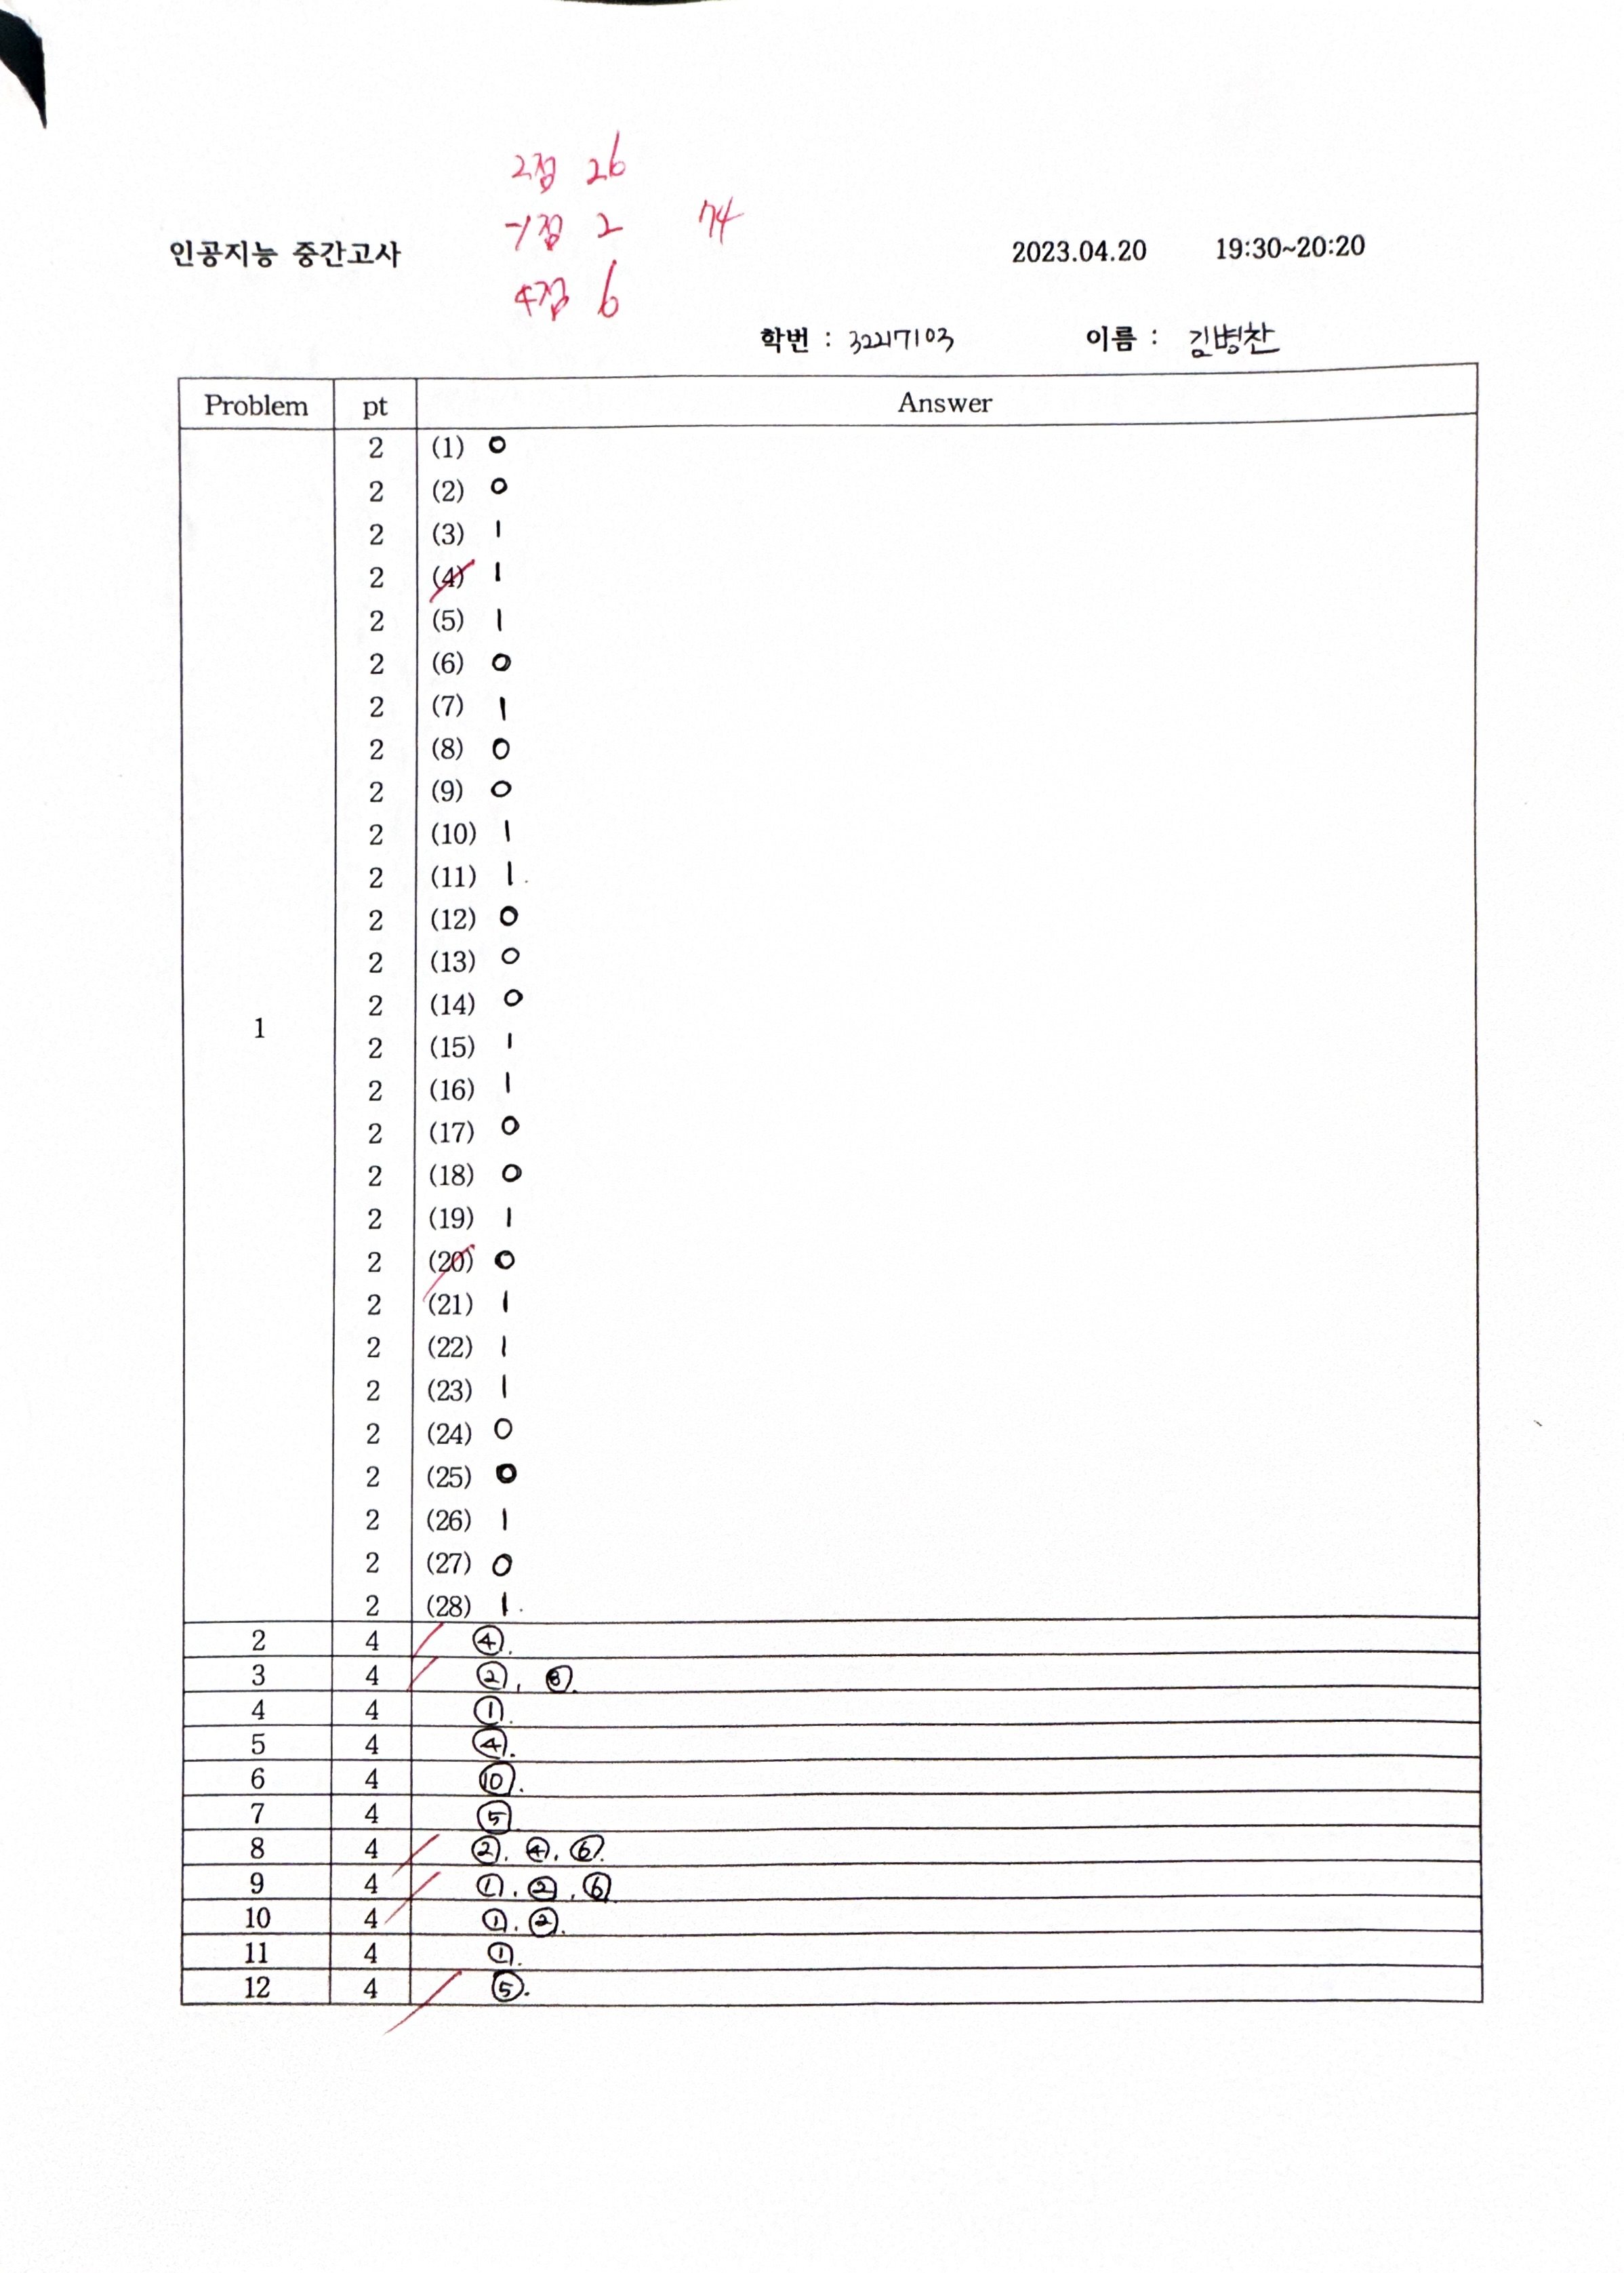 2점 26
-1점 2 74
4점 6
인공지능 중간고사 2023.04.20 19:30~20:20
학번 : 32217103 이름 : 김병찬
Problem pt Answer
2 (1) 0
2 (2) 0
2 (3) 1
2 (4) 1
2 (5) 1
2 (6) 0
2 (7) 1
2 (8) 0
2 (9) 0
2 (10) 1
2 (11) 1.
2 (12) 0
2 (13) 0
2 (14) 0
1
2 (15) 1
2 (16) 1
2 (17) 0
2 (18) 0
2 (19) 1
2 (20) 0
2 (21) 1
2 (22) 1
2 (23) 1
2 (24) 0
2 (25) 0
2 (26) 1
2 (27) 0
2 (28) 1.
2 4 ④.
3 4 ②, ⑧.
4 4 ①.
5 4 ④.
6 4 ⑩.
7 4 ⑤
8 4 ②. ④. ⑥.
9 4 ①. ②. ⑥.
10 4 ①. ②.
11 4 ①.
12 4 ⑤.